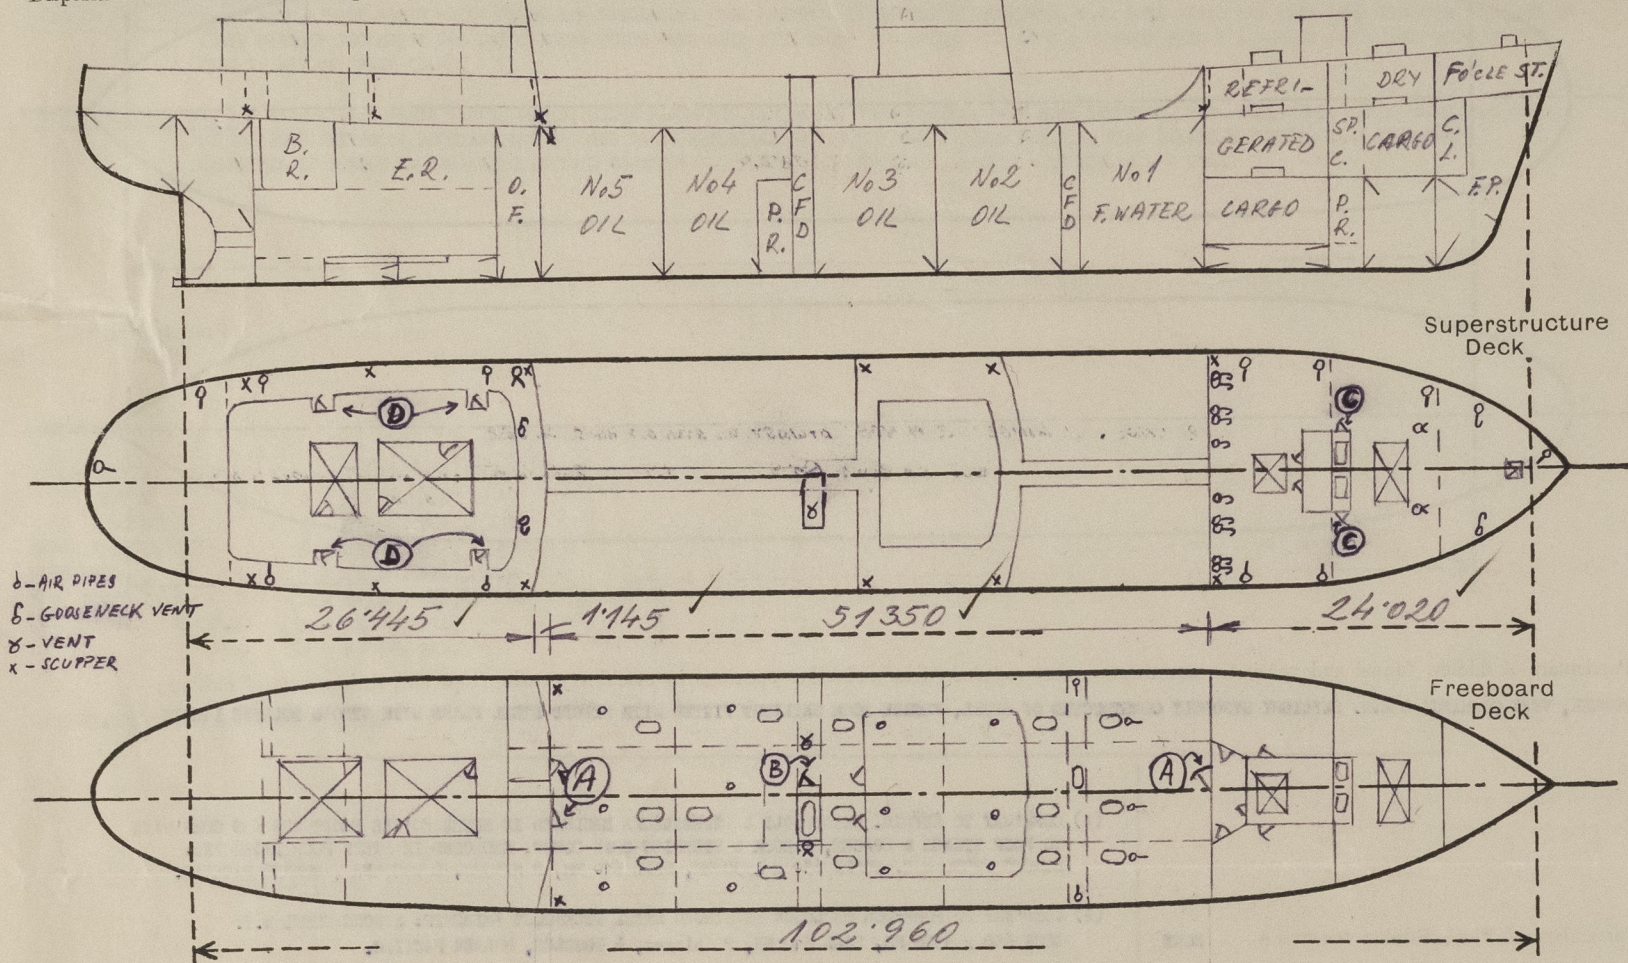 REFRI-
DRY
FO'CLE ST.
B.
R.
E.R.
O.
F.
No5
OIL
No4
OIL
P.
R.
C
F
D
No3
OIL
No2
OIL
C
F
D
No1
F.WATER
GERATED
CARGO
SP.
C.
P.
R.
CARGO
C.
L.
F.P.
Superstructure
Deck
D
C
D
C
δ - AIR PIPES
- GOOSENECK VENT
- VENT
x - SCUPPER
26·445
1·145
51350
24·020
Freeboard
Deck
A
B
A
102·960